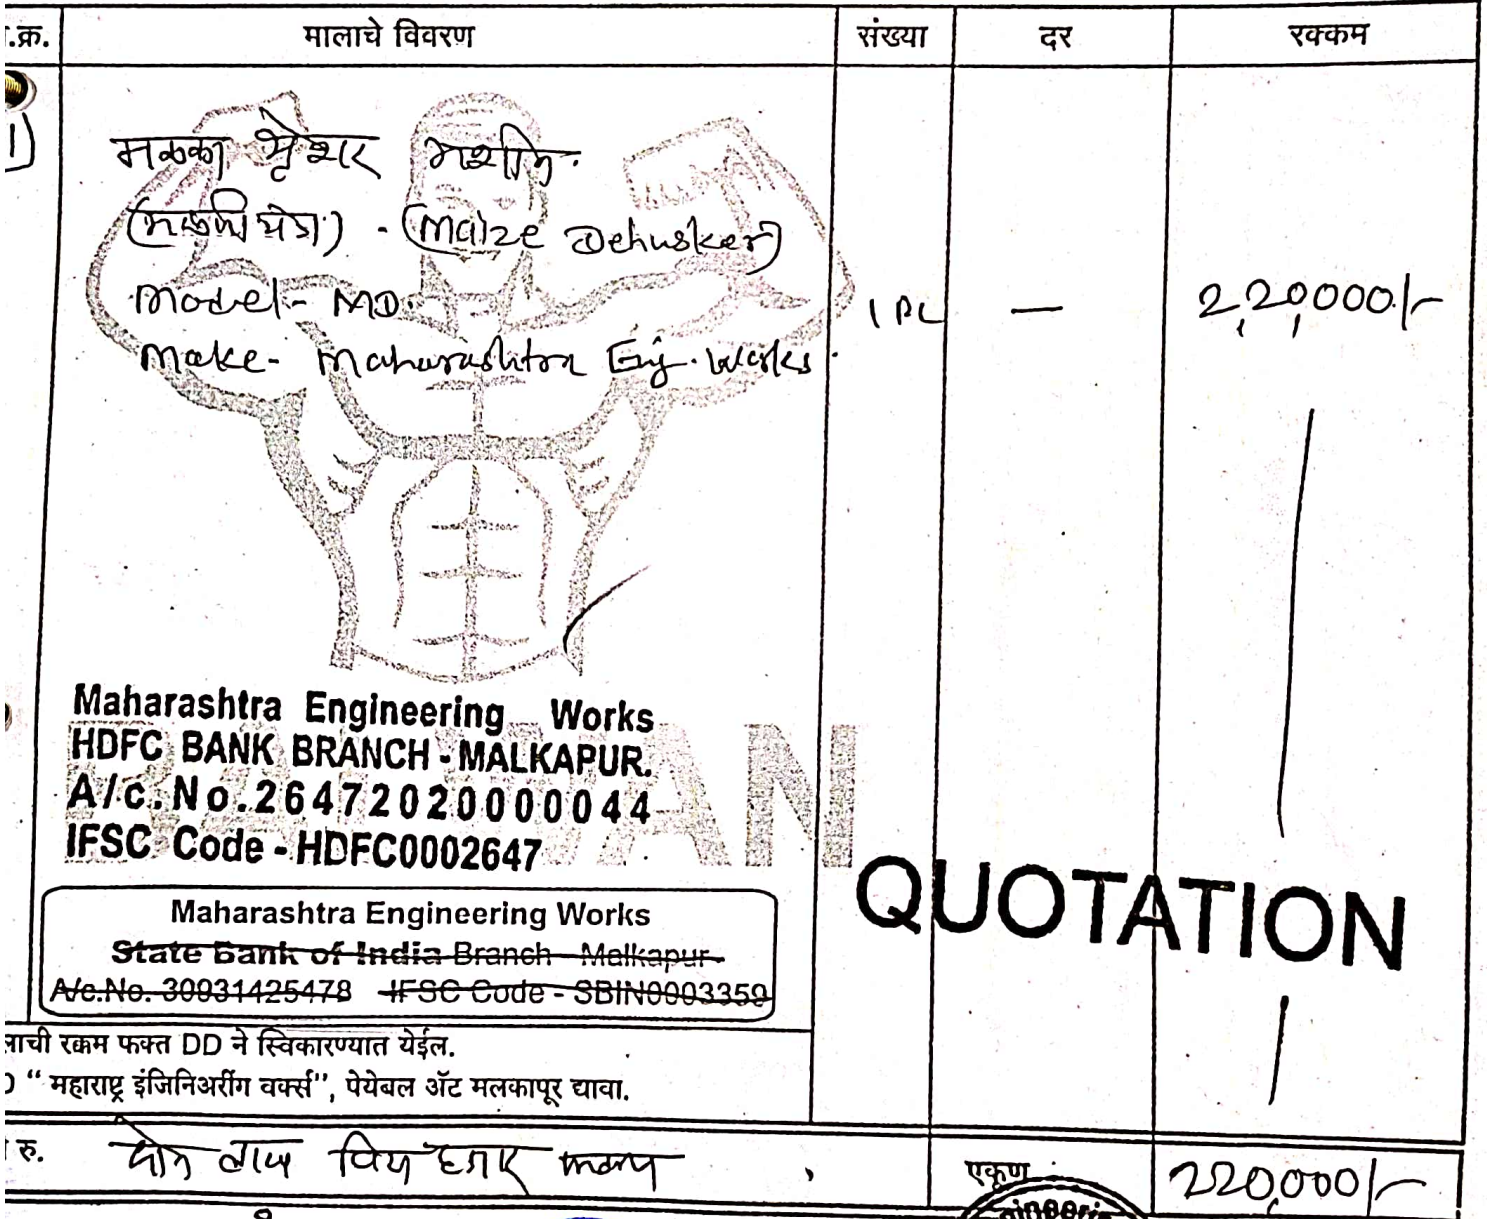 .क्र. मालाचे विवरण संख्या दर रक्कम
1) मक्का थ्रेशर मशीन.
(मळणी यंत्र) - (Maize Dehusker)
Model - MD. 1 PC — 2,20,000/-
Make - Maharashtra Eng. Works.
BALWAN
Maharashtra Engineering Works
HDFC BANK BRANCH - MALKAPUR.
A/c.No.26472020000044
IFSC Code - HDFC0002647
QUOTATION
Maharashtra Engineering Works
State Bank of India Branch - Malkapur
A/c.No. 30031425478 IFSC Code - SBIN0003359
लाची रक्कम फक्त DD ने स्विकारण्यात येईल.
D “ महाराष्ट्र इंजिनिअरींग वर्क्स”, पेयेबल ॲट मलकापूर द्यावा.
रु. दोन लाख विस हजार रुपये एकूण 220,000/-